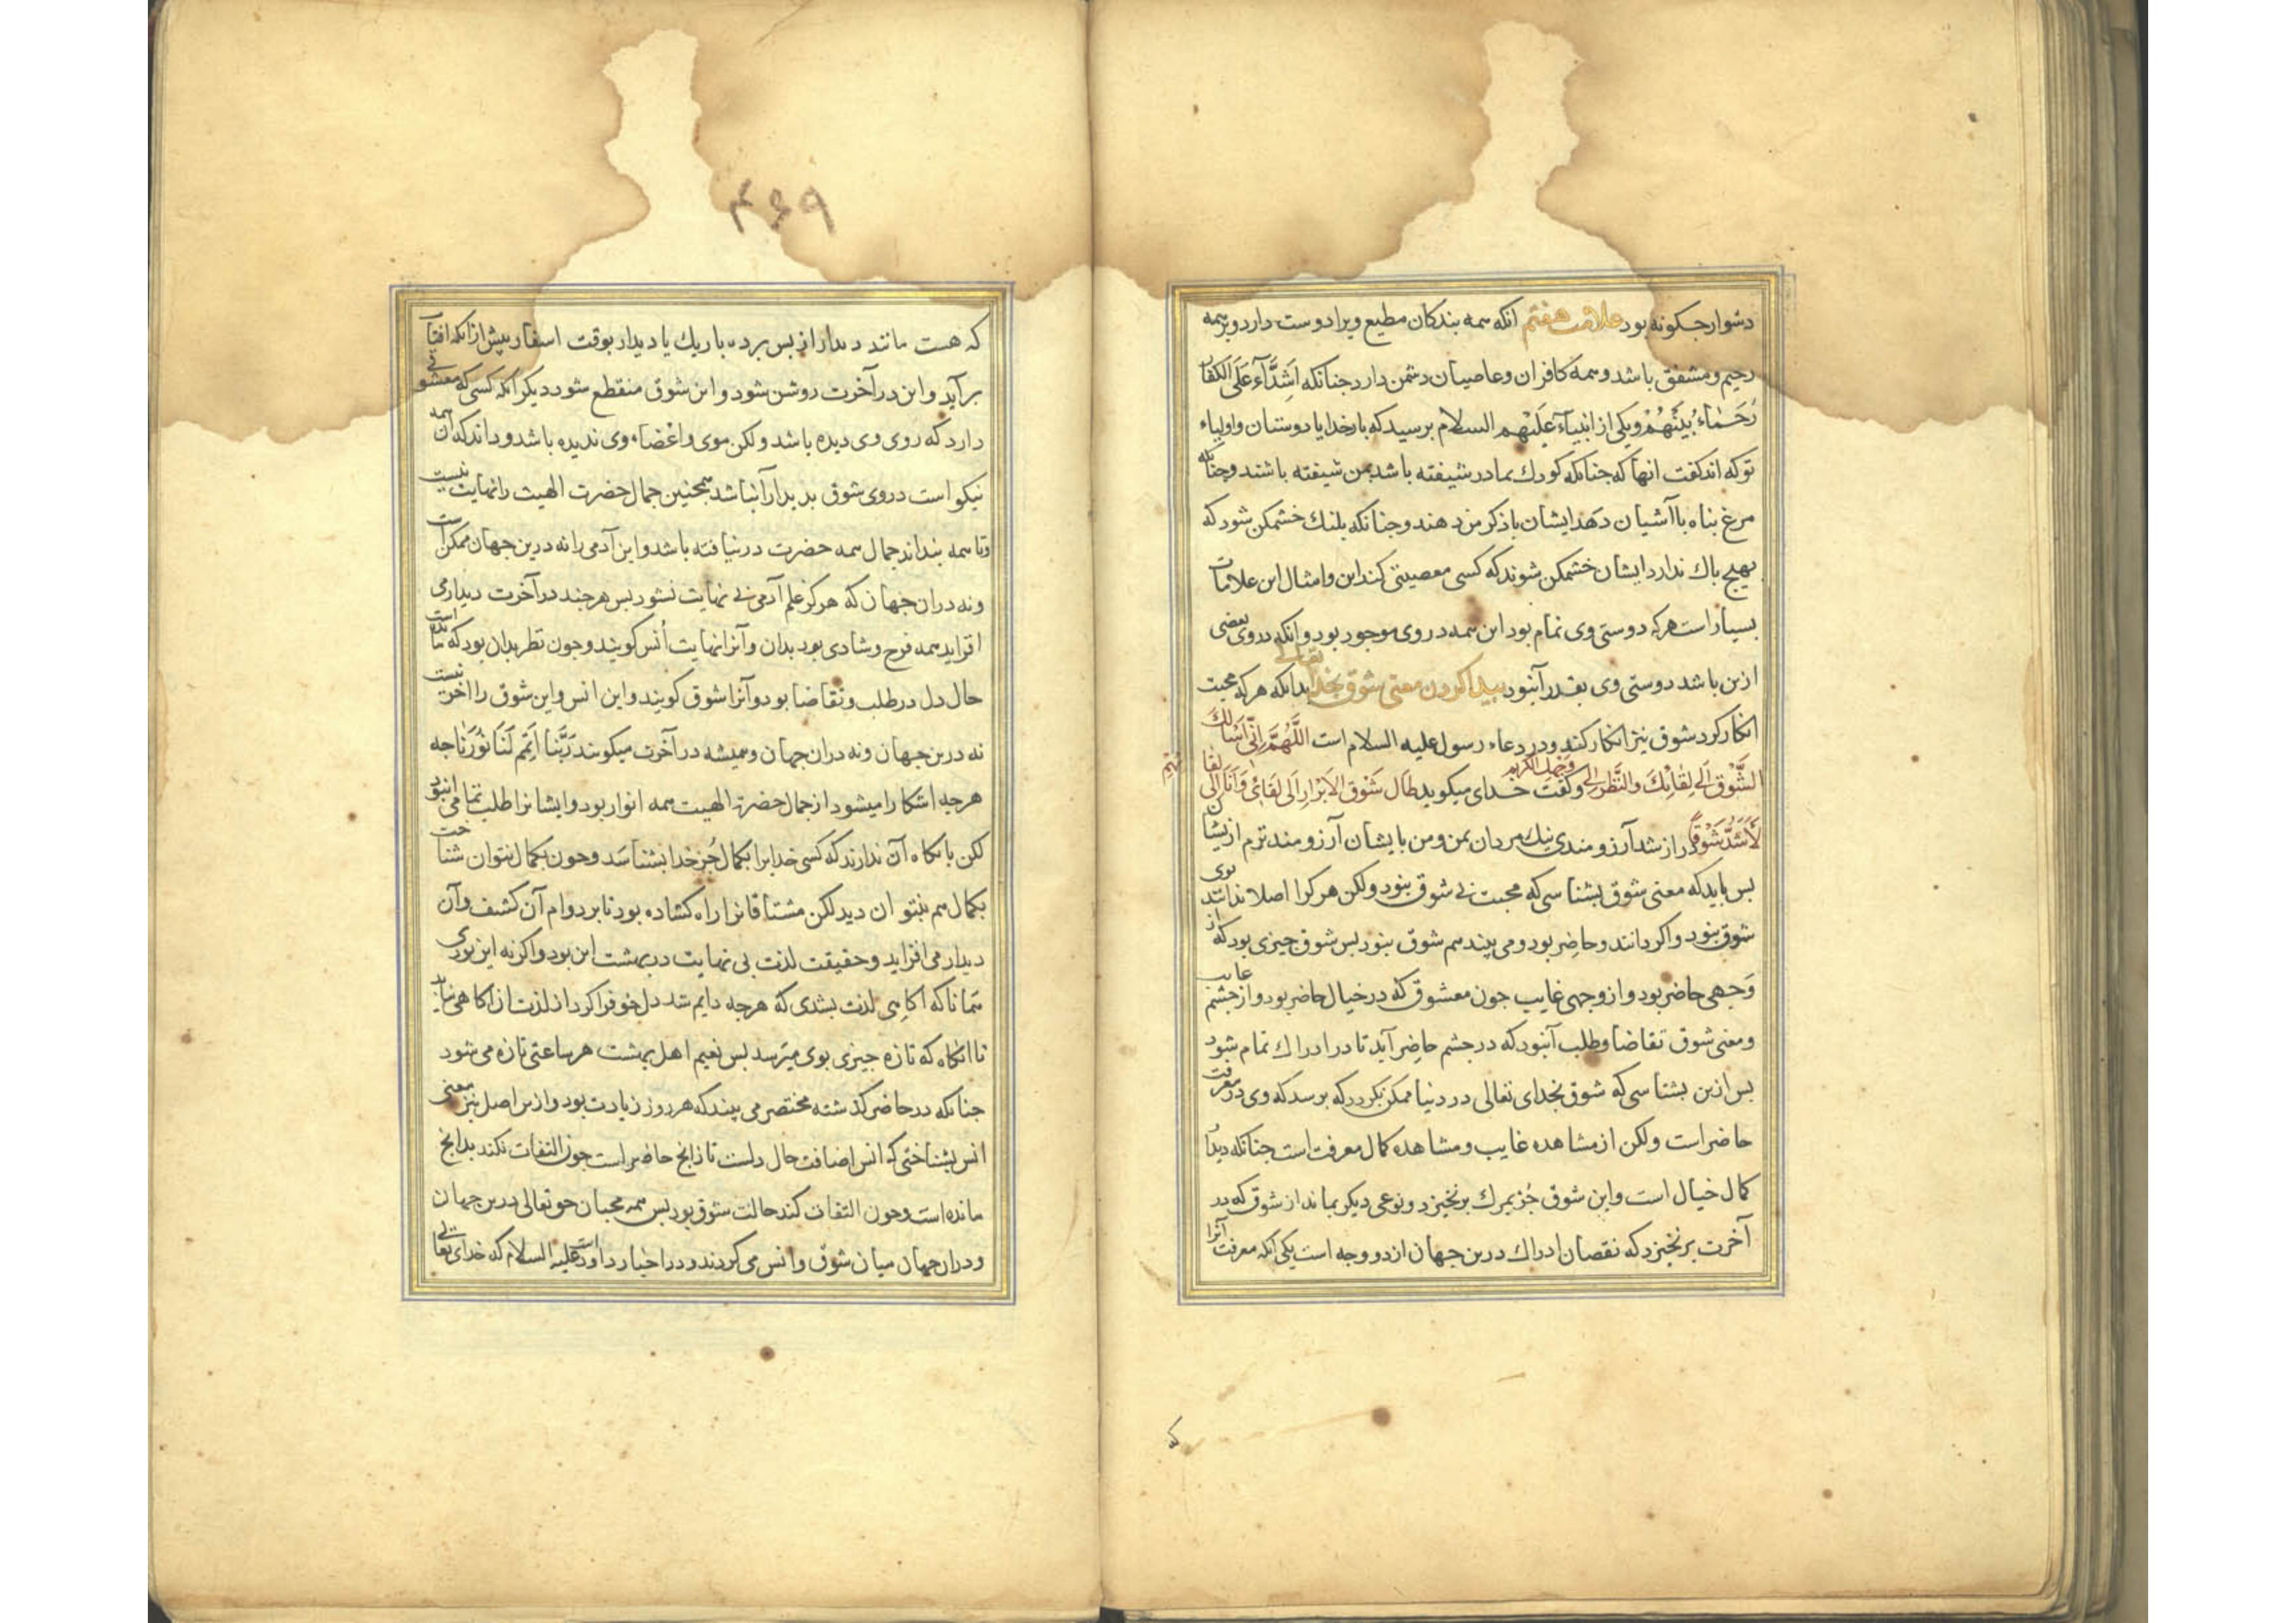 دشوار جکونه بود علامت هفتم انکه همه بندکان مطیع ویرا دوست دارد و بر همه
رحیم و مشفق باشد و همه کافران و عاصیان دشمن دارد جنانکه اَشِدَّآءُ عَلَی الکفار
رُحَمَاءُ بَیْنَهُمْ و یکی از انبیآء عَلَیْهِم السلام برسید که بار خدایا دوستان و اولیاء
تو که اند کفت انها که جنانکه کودك بمادر شیفته باشد بمن شیفته باشند و جنانکه
مرغ بناه باآشیان دهد ایشان باذکر من دهند و جنانکه بلنك خشمکن شود که
بهیج باك ندارد ایشان خشمکن شوند که کسی معصیتی کند این و امثال این علامات
بسیار است هر که دوستی وی تمام بود این همه در وی موجود بود و انکه در وی بعضی
ازین باشد دوستی وی بقدر آن بود بیدا کردن معنی شوق بخدا تعالی بدانکه هر که محبت
انکار کرد شوق نیز انکار کند و در دعاء رسول علیه السلام است اللَّهُمَّ اِنّی اَسْالُكَ
الشَّوْقَ اِلَی لِقَائِكَ وَالنَّظَرَ اِلی وَجْهِكَ الکریم و کفت خدای میکوید طَالَ شَوْقُ الاَبْرَارِ اِلَی لِقَائی وَ اَنَا اِلَی لِقَائِهِم
لَأَشَدُّ شَوْقًا دراز شد آرزومندی نیك مردان بمن و من بایشان آرزومندترم از ایشان
بس باید که معنی شوق بشناسی که محبت بی شوق نبود ولکن هر کرا اصلا ندانند بوی
شوق نبود و اکر دانند و حاضر بود و می بیند هم شوق نبود بس شوق جیزی بود که از
وَجهی حاضر بود و از وجهی غایب جون معشوق که در خیال حاضر بود و از جشم غایب
و معنی شوق تقاضا و طلب آن بود که در جشم حاضر آید تا در ادراك تمام شود
بس ازین بشناسی که شوق بخدای تعالی در دنیا ممکن نکردد که برسد که وی در معرفت
حاضر است ولکن از مشاهده غایب و مشاهده کمال معرفت است جنانکه دیدار
کمال خیال است و این شوق جُز بمرك برنخیزد و نوعی دیکر بماند از شوق که در
آخرت برنخیزد که نقصان ادراك درین جهان از دو وجه است یکی آنکه معرفت آنرا
که
۴۶۹
که هست مانند دیدار از بس برده باریك یا دیدار بوقت اسفار بیش از آنکه افتاب
برآید و این در آخرت روشن شود و این شوق منقطع شود دیکر آنکه کسی که معشوقی
دارد که روی وی دیده باشد ولکن موی و اعضاء وی ندیده باشد و داند که آن همه
نیکو است در وی شوق بدیدار آن باشد همجنین جمال حضرت الهیت را نهایت نیست
و تا همه بنداند جمال همه حضرت در نیافته باشد و این آدمی را نه درین جهان ممکن است
و نه دران جهان که هرکز علم آدمی بی نهایت نشود بس هر جند در آخرت دیدار می
افزاید همه فرح و شادی بود بدان و آنرا نهایت اُنس کویند و جون نظر بدان بود که مانده است
حال دل در طلب و تقاضا بود و آنرا شوق کویند و این انس و این شوق را اخر نیست
نه درین جهان و نه دران جهان و همیشه در آخرت میکویند رَبَّنَا اَتْمِم لَنَا نُوْرَنَا جه
هرجه اشکارا میشود از جمال حضرت الهیت همه انوار بود و ایشانرا طلب تمامی ان بود
لکن باکاه آن ندارند که کسی خدایرا بکمال جُز خدا بشناسَد و جون بکمال نتوان شناخت
بکمال هم نبتوان دید لکن مشتاقانرا راه کشاده بود تا بر دوام آن کشف و آن
دیدار می افزاید و حقیقت لذت بی نهایت در بهشت این بود و اکر نه این بودی
همانا که اکاهی لذت بشدی که هرجه دایم شد دل خو فرا کرد از لذت از اکاهی نیابد
تا انکاه که تازه جیزی بوی میرسد بس نعیم اهل بهشت هر ساعتی تازه می شود
جنانکه در حاضر کذشته مختصر می بیند که هر روز زیادت بود و ازین اصل نیز معنی
انس بشناختی که انس اضافت حال دلست تا زانج حاضر است جون التفات نکند بدانج
مانده است و جون التفات کند حالت شوق بود بس همه محبان حق تعالی درین جهان
و دران جهان میان شوق و انس می کردند و در اخبار داود است علیه السلام که خدای تعالی